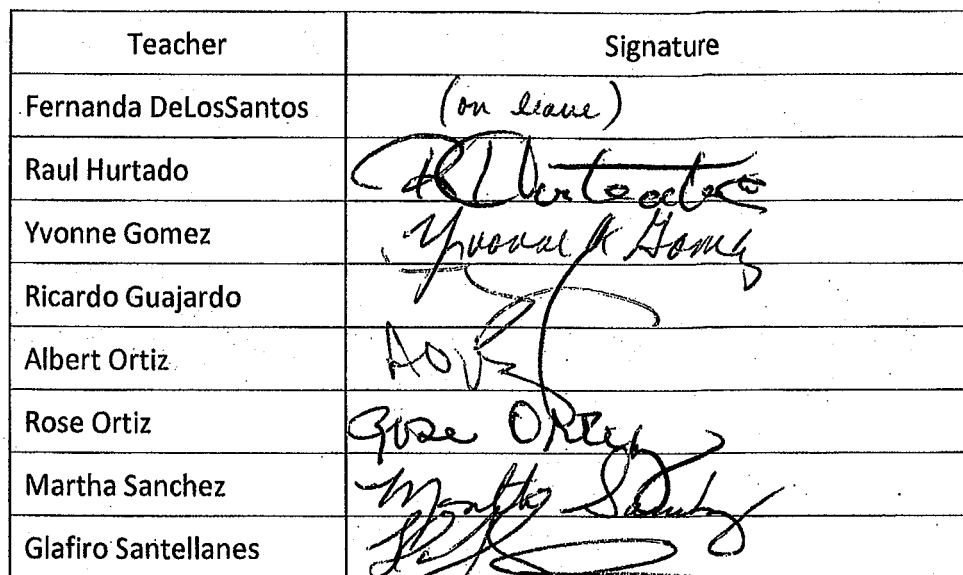 Teacher Signature
Fernanda DeLosSantos (on leave)
Raul Hurtado
Yvonne Gomez Yvonne K Gomez
Ricardo Guajardo
Albert Ortiz
Rose Ortiz Rose Ortiz
Martha Sanchez Martha Sanchez
Glafiro Santellanes